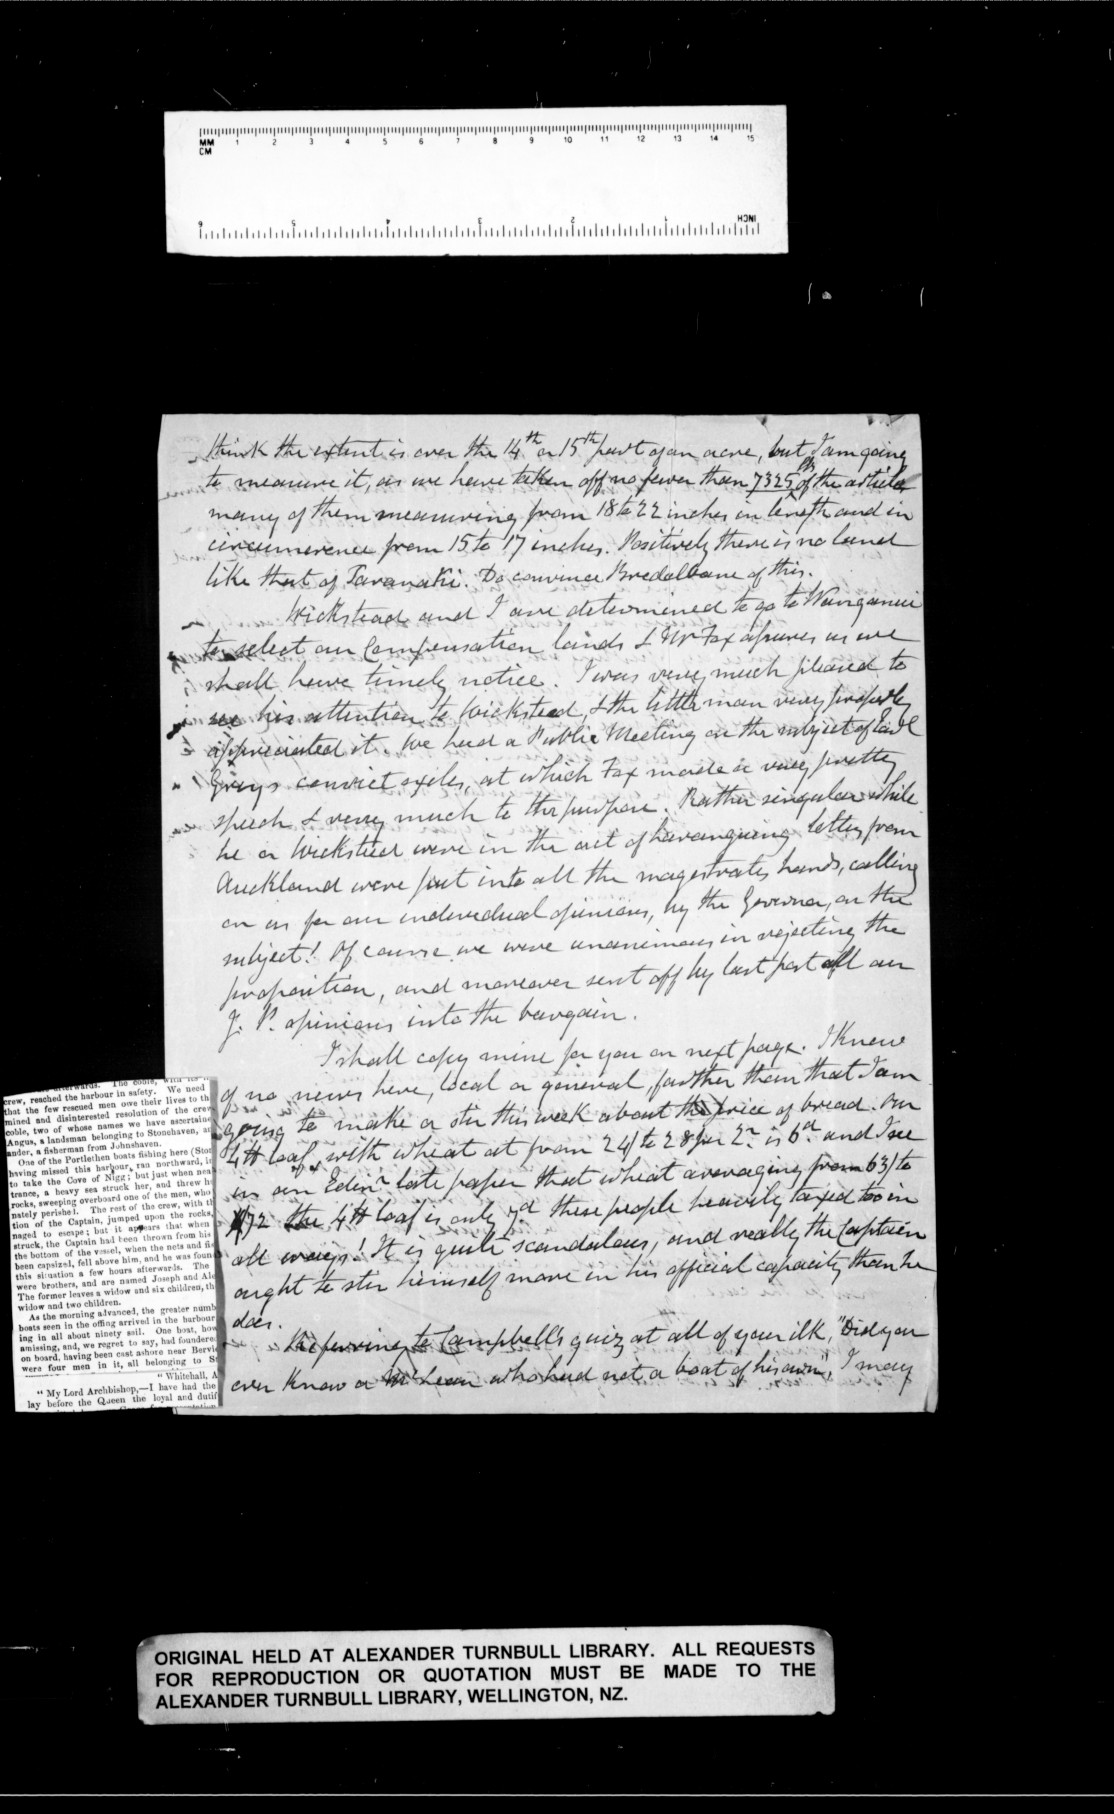 MM 1 2 3 4 5 6 7 8 9 10 11 12 13 14 15
CM
6 5 4 3 2 1 INCH
think the extent is over the 14th or 15th part of an acre, but I am going
to measure it, as we have taken off no fewer than 7325 of the article
many of them measuring from 18 to 22 inches in length and in
circumerence from 15 to 17 inches. Positively there is no land
like that of Taranaki. Do convince Bredalbane of this.
Wickstead and I are determined to go to Wanganui
to select our Compensation lands & Mr Fox assures us we
shall have timely notice. I was very much pleased to
see his attention to Wickstead, & the little man very properly
appreciated it. We had a Public Meeting on the subject of Earl
Greys convict exiles, at which Fox made a very pretty
speech & very much to the purpose. Rather singular while
he or Wickstead were in the act of haranguing letters from
Auckland were put into all the magistrates hands, calling
on us for our individual opinions, by the Governor, on the
subject! Of course we were unanimous in rejecting the
proposition, and moreover sent off by last post all our
J. P. opinions into the bargain.
I shall copy mine for you on next page. I know
of no news here, local or general, farther than that I am
going to make a stir this week about the price of bread. Our
4 lb loaf, with wheat at from 24/ to 28/ per 2r. is 6d. and I see
in an Edinr late paper that wheat averaging from 63/ to
72 the 4 lb loaf is only 7d these people heavily taxed too in
all ways! It is quite scandalous, and really the Captain
ought to stir himself more in his official capacity than he
does.
Referring to Campbell's quiz at all of your ilk, "Did you
ever know a McLean who had not a boat of his own", I may
afterwards. The coble, with its
crew, reached the harbour in safety. We need
that the few rescued men owe their lives to th
mined and disinterested resolution of the crew
coble, two of whose names we have ascertaine
Angus, a landsman belonging to Stonehaven, a
ander, a fisherman from Johnshaven.
One of the Portlethen boats fishing here (Sto
having missed this harbour, ran northward, i
to take the Cove of Nigg; but just when nea
trance, a heavy sea struck her, and threw h
rocks, sweeping overboard one of the men, who
nately perished. The rest of the crew, with th
tion of the Captain, jumped upon the rocks,
naged to escape; but it appears that when
struck, the Captain had been thrown from his
the bottom of the vessel, when the nets and fis
been capsized, fell above him, and he was foun
this situation a few hours afterwards. The
were brothers, and are named Joseph and Ale
The former leaves a widow and six children, th
widow and two children.
As the morning advanced, the greater numb
boats seen in the offing arrived in the harbour
ing in all about ninety sail. One boat, how
amissing, and, we regret to say, had foundered
on board, having been cast ashore near Bervie
were four men in it, all belonging to St
"Whitehall, A
"My Lord Archbishop,—I have had the
lay before the Queen the loyal and dutif
ORIGINAL HELD AT ALEXANDER TURNBULL LIBRARY. ALL REQUESTS
FOR REPRODUCTION OR QUOTATION MUST BE MADE TO THE
ALEXANDER TURNBULL LIBRARY, WELLINGTON, NZ.